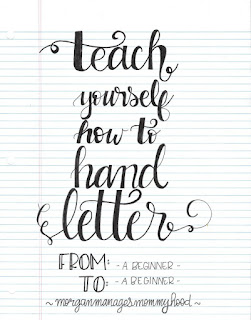 teach
yourself
how to
hand
letter
FROM: - A BEGINNER -
TO: - A BEGINNER -
~morganmanagesmommyhood~